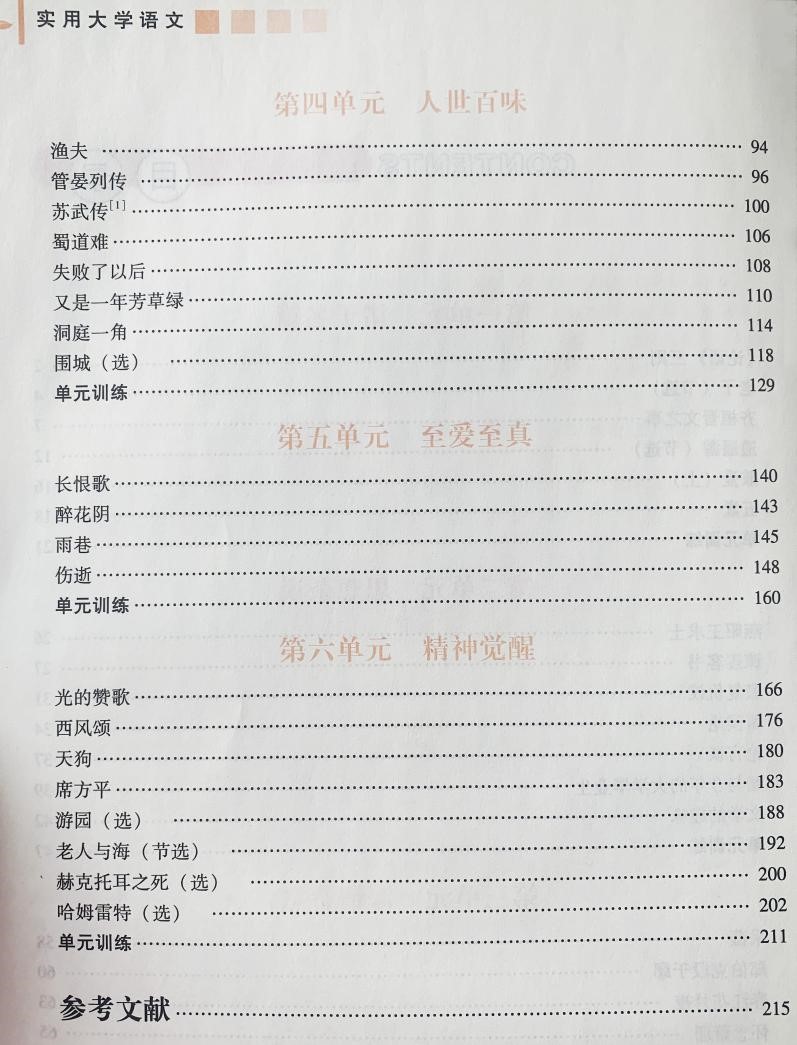 实用大学语文
第四单元 人世百味
渔夫 …… 94
管晏列传 …… 96
苏武传[1] …… 100
蜀道难 …… 106
失败了以后 …… 108
又是一年芳草绿 …… 110
洞庭一角 …… 114
围城（选） …… 118
单元训练 …… 129
第五单元 至爱至真
长恨歌 …… 140
醉花阴 …… 143
雨巷 …… 145
伤逝 …… 148
单元训练 …… 160
第六单元 精神觉醒
光的赞歌 …… 166
西风颂 …… 176
天狗 …… 180
席方平 …… 183
游园（选） …… 188
老人与海（节选） …… 192
赫克托耳之死（选） …… 200
哈姆雷特（选） …… 202
单元训练 …… 211
参考文献 …… 215